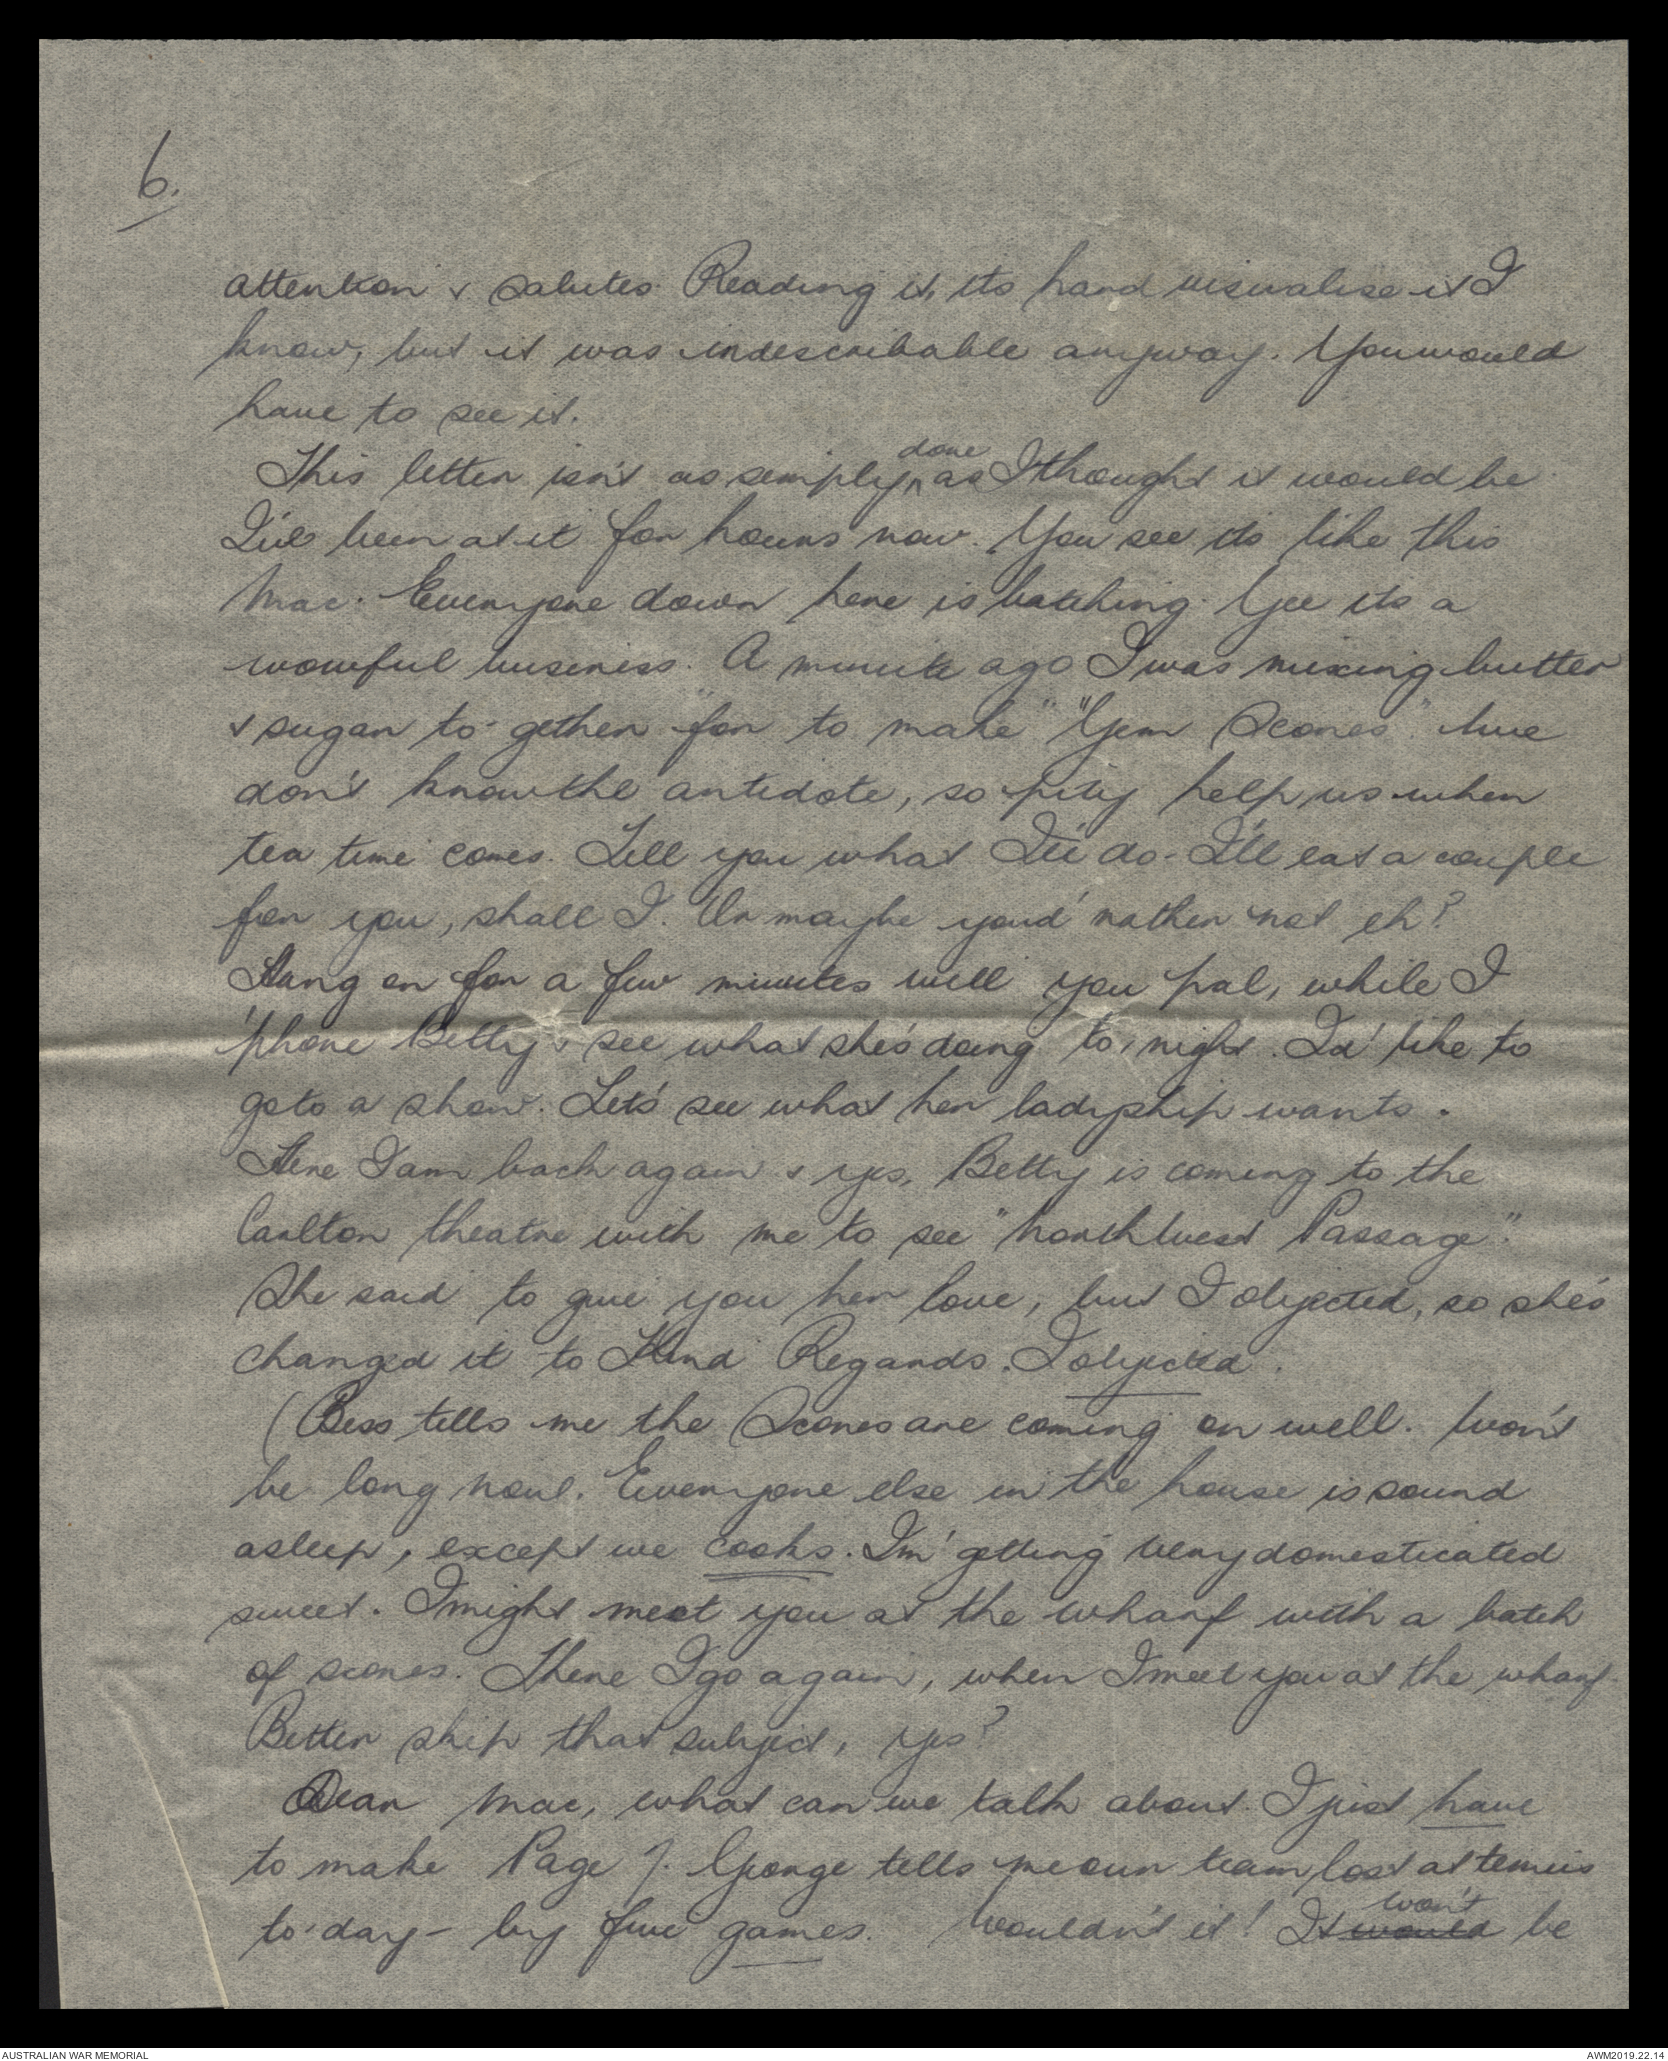 6.
attention & salutes. Reading it, its hard visualise it I
know, but it was indescribable anyway. You would
have to see it.
This letter isn't as simply done as I thought it would be
I've been at it for hours now. You see its like this
Mac. Everyone down here is batching. Gee its a
wowful business. A minute ago I was mixing butter
& sugar to-gether "for to make" "Gem Scones". We
don't know the antidote, so pity help us when
tea time comes. Tell you what I'll do - I'll eat a couple
for you, shall I. Or maybe you'd rather not eh?
Hang on for a few minutes will you pal, while I
'phone Betty & see what she's doing to,night. I'd like to
go to a show. Let's see what her ladyship wants.
Here I am back again & yes, Betty is coming to the
Carlton theatre with me to see "North West Passage".
She said to give you her love, but I objected, so she's
changed it to Kind Regards. I objected.
(Bess tells me the Scones are coming on well. Won't
be long now. Everyone else in the house is sound
asleep, except we cooks. I'm getting very domesticated
sweet. I might meet you at the wharf with a batch
of scones. There I go again, when I meet you at the wharf.
Better skip that subject, yes?
Dear Mac, what can we talk about. I just have
to make Page 7. George tells me our team lost at tennis
to-day - by five games. Wouldn't it! It would won't be
AUSTRALIAN WAR MEMORIAL
AWM2019.22.14